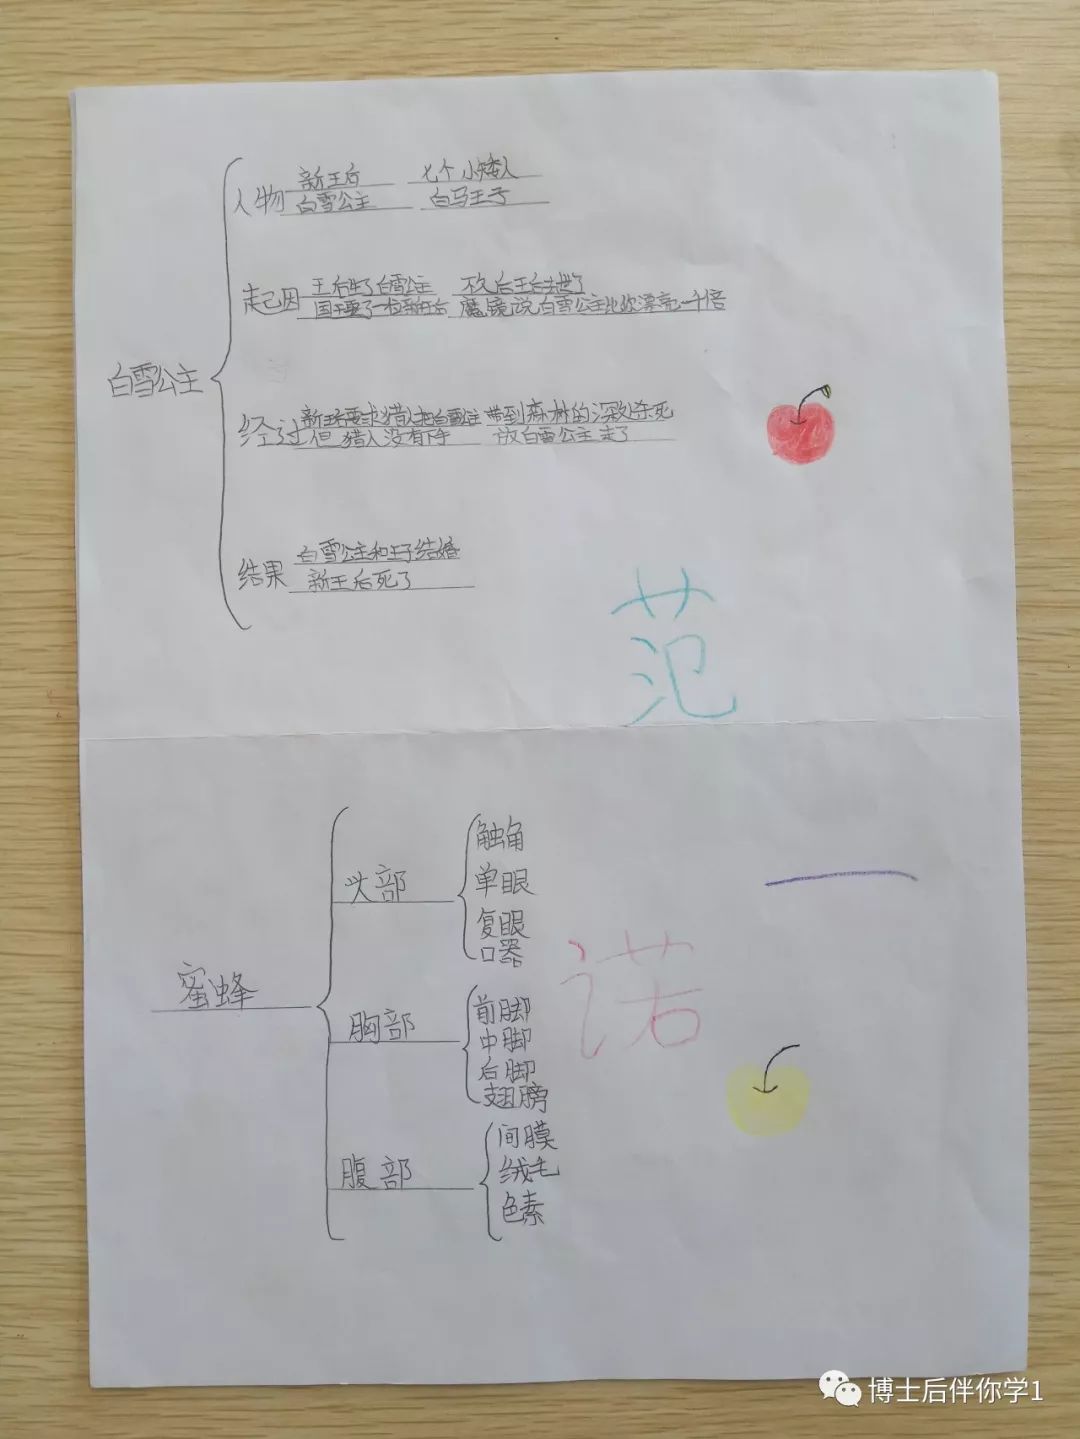 人物 新王后 七个小矮人
白雪公主 白马王子
起因 王后生了白雪公主 不久后王后去世了
国王娶了一位新王后 魔镜说白雪公主比你漂亮一千倍
白雪公主
经过 新王后要求猎人把白雪公主带到森林的深处杀死
但猎人没有下手 放白雪公主走了
结果 白雪公主和王子结婚
新王后死了
范
一
诺
蜜蜂
头部
触角
单眼
复眼
口器
胸部
前脚
中脚
后脚
翅膀
腹部
间膜
绒毛
色素
博士后伴你学1